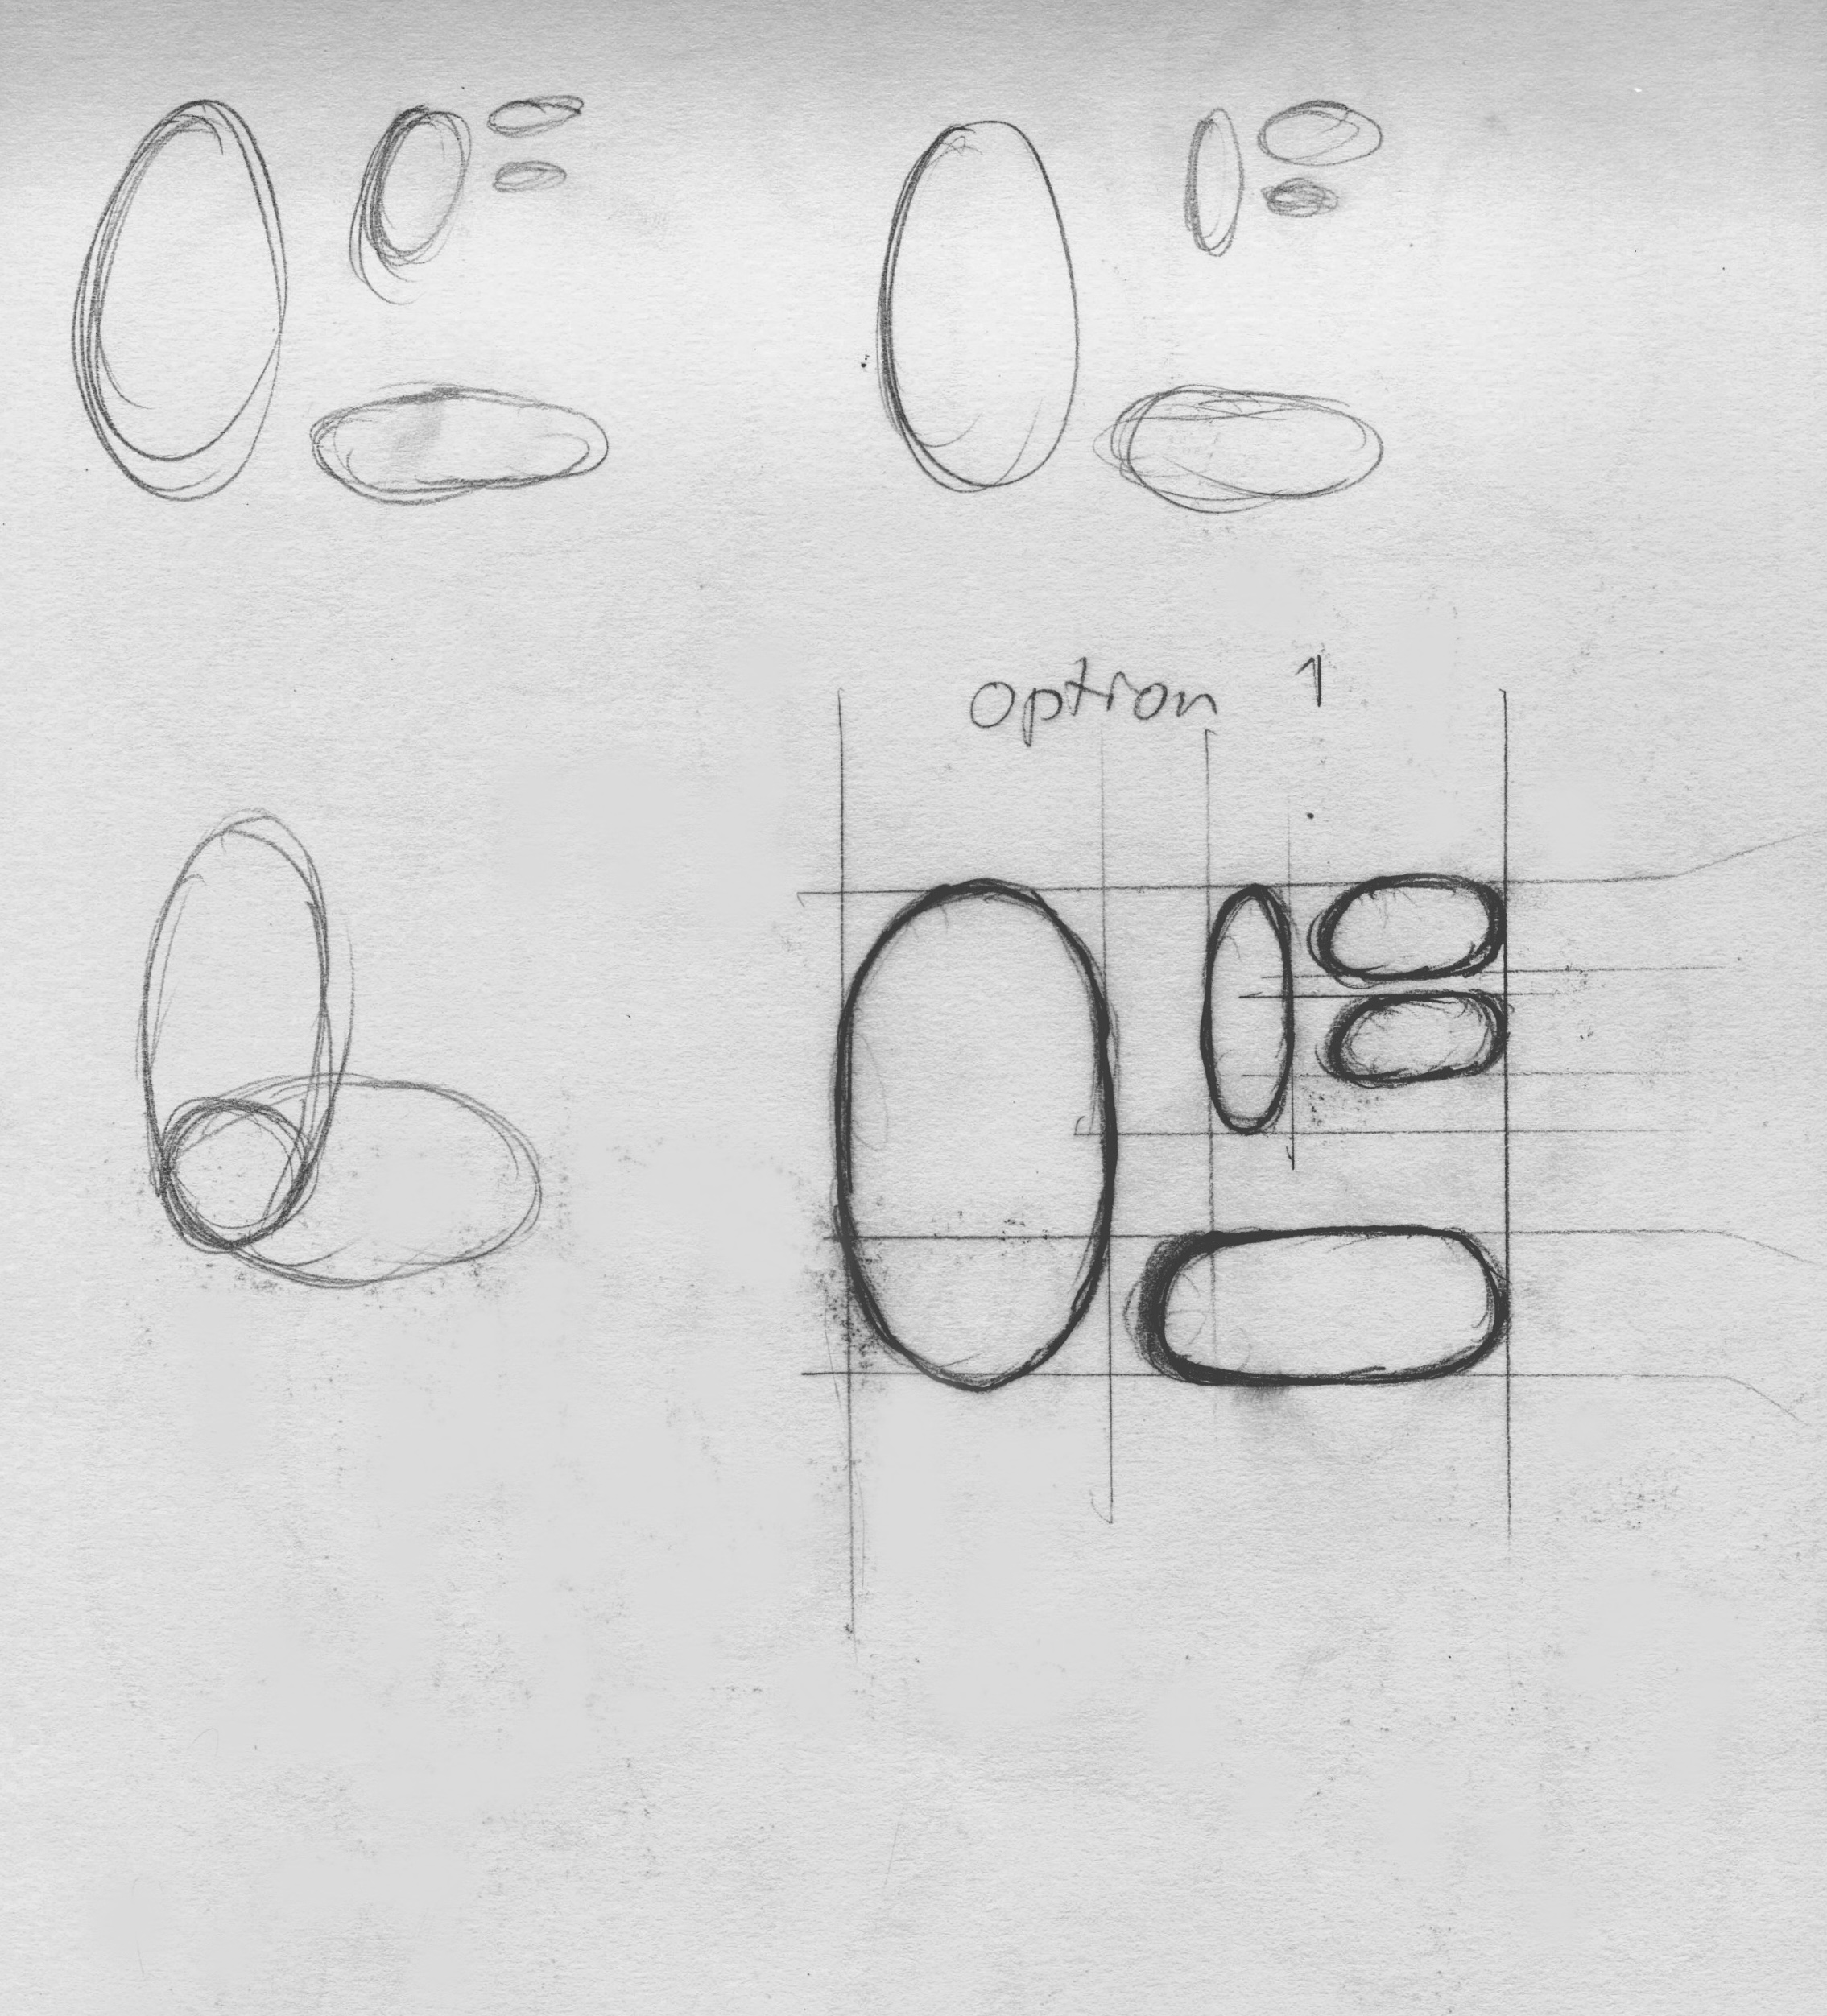 option 1